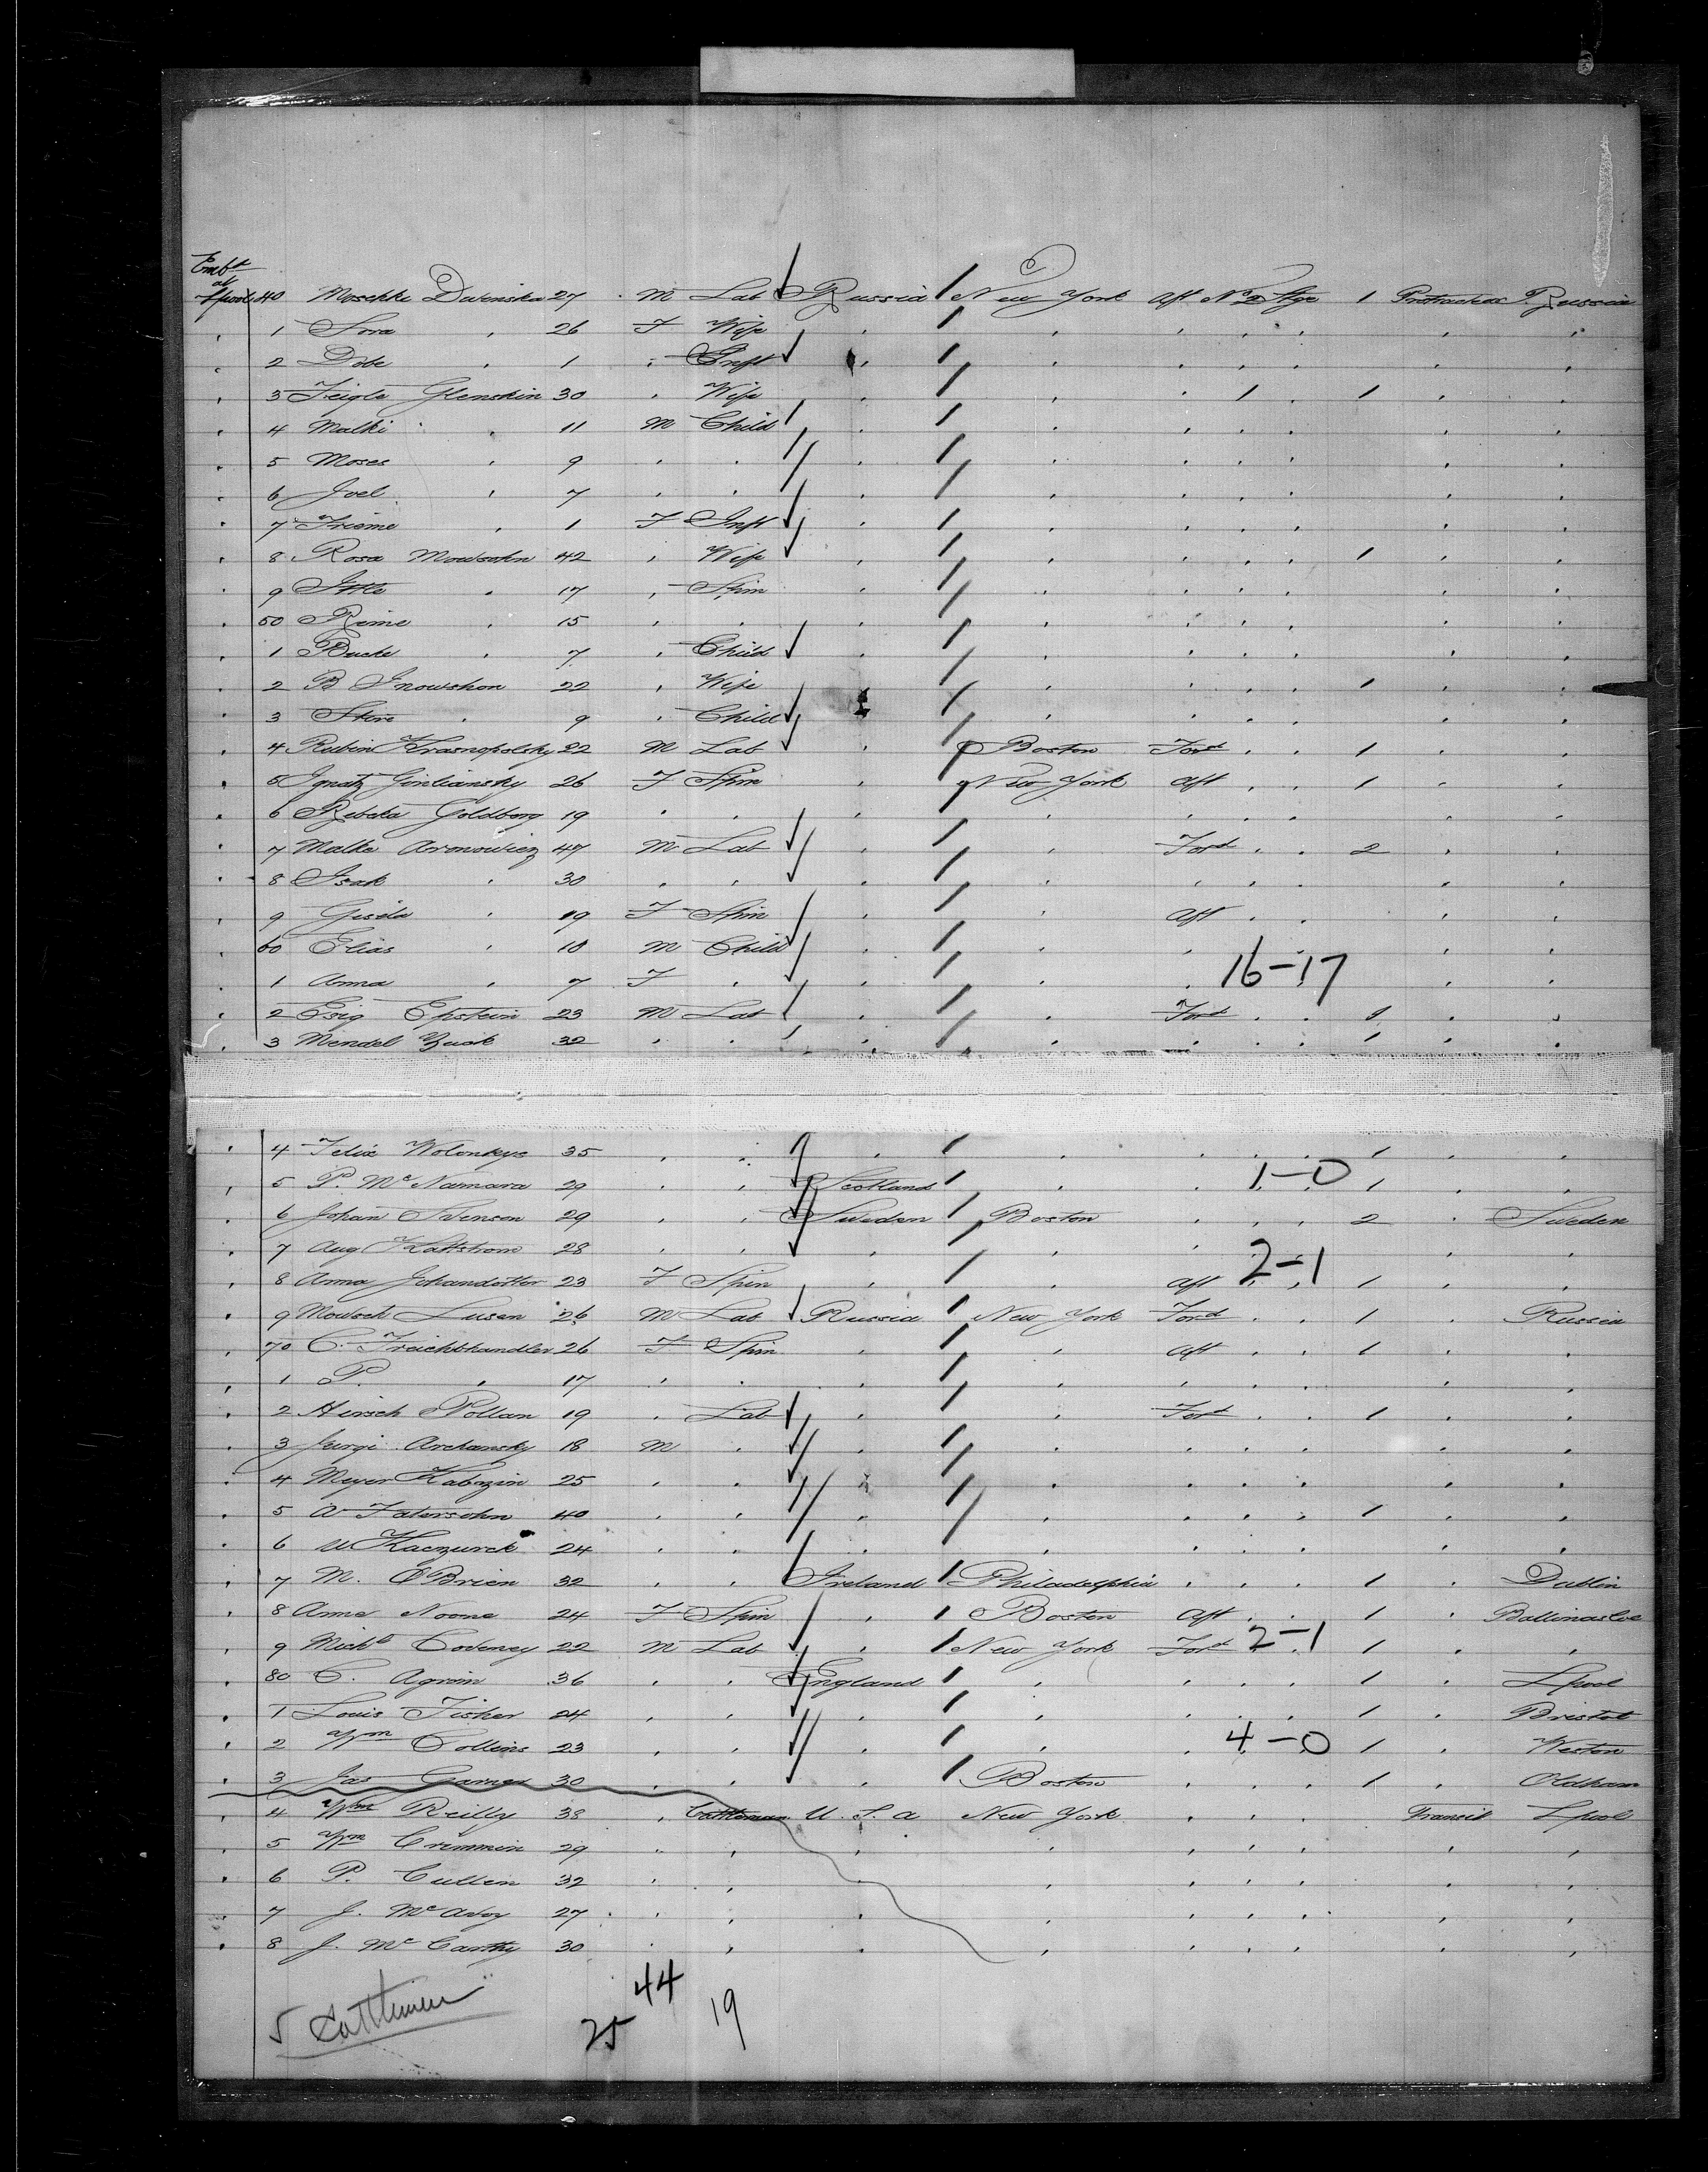 Embd at
Lpool 40 Moschke Dwinska 27 M Lab Russia New York Aft No 2 Stge 1 Protracted Russia
1 Sora " 26 F Wife
2 Dobe " 1 " Inft
3 Feigla Glenskin 30 " Wife 1 1
4 Malki " 11 M Child
5 Moses " 9 " "
6 Joel " 7 " "
7 Frieme " 1 F Inft
8 Rosa Mowsohn 42 " Wife 1
9 Ittle " 17 " Spin
50 Reime " 15 " "
1 Bucke " 7 " Child
2 B Snowshon 22 " Wife 1
3 Skire " 9 " Child
4 Rubin Krasnopolsky 22 M Lab Boston Ford 1
5 Ignatz Ginliansky 26 F Spin New York Aft 1
6 Rebeka Goldberg 19 " "
7 Malke Aronowicz 47 M Lab Ford 2
8 Isak " 30 " "
9 Gisela " 19 F Spin Aft
60 Elias " 10 M Child
1 Anna " 7 F " 16-17
2 Esig Epstein 23 M Lab Ford 1
3 Mendel Zuck 32 " " 1
4 Felix Wolonkys 35 " " 1
5 P. McNamara 29 " " Scotland 1-0 1
6 Johan Svenson 29 " " Sweden Boston 2 Sweden
7 Aug Kattstrom 28 " "
8 Anna Johandotter 23 F Spin Aft 2-1 1
9 Mowsch Lusen 26 M Lab Russia New York Ford 1 Russia
70 C. Freichthandler 26 F Spin Aft 1
1 P. " 17 " "
2 Hirsch Pollan 19 " Lab Ford 1
3 Jurgi Archansky 18 M "
4 Meyer Kabzin 25 " "
5 A Fatersohn 40 " " 1
6 M Kaczurck 24 " "
7 M. O'Brien 32 " " Ireland Philadelphia 1 Dublin
8 Anne Noone 24 F Spin " Boston Aft 1 Ballinasloe
9 Michl Coveney 22 M Lab " New York Ford 2-1 1 "
80 C. Agrain 36 " " England 1 Lpool
1 Louis Fisher 24 " " 1 Bristol
2 Wm Collins 23 " " 4-0 1 Weston
3 Jas Garner 30 " " Boston 1 Oldham
4 Wm Reilly 38 " Cattleman U.S.A New York Transit Lpool
5 Wm Crimmin 29 " "
6 P. Cullen 32 " "
7 J. McAvoy 27 " "
8 J. McCarthy 30 " "
5 Cattlemen
44
25 19